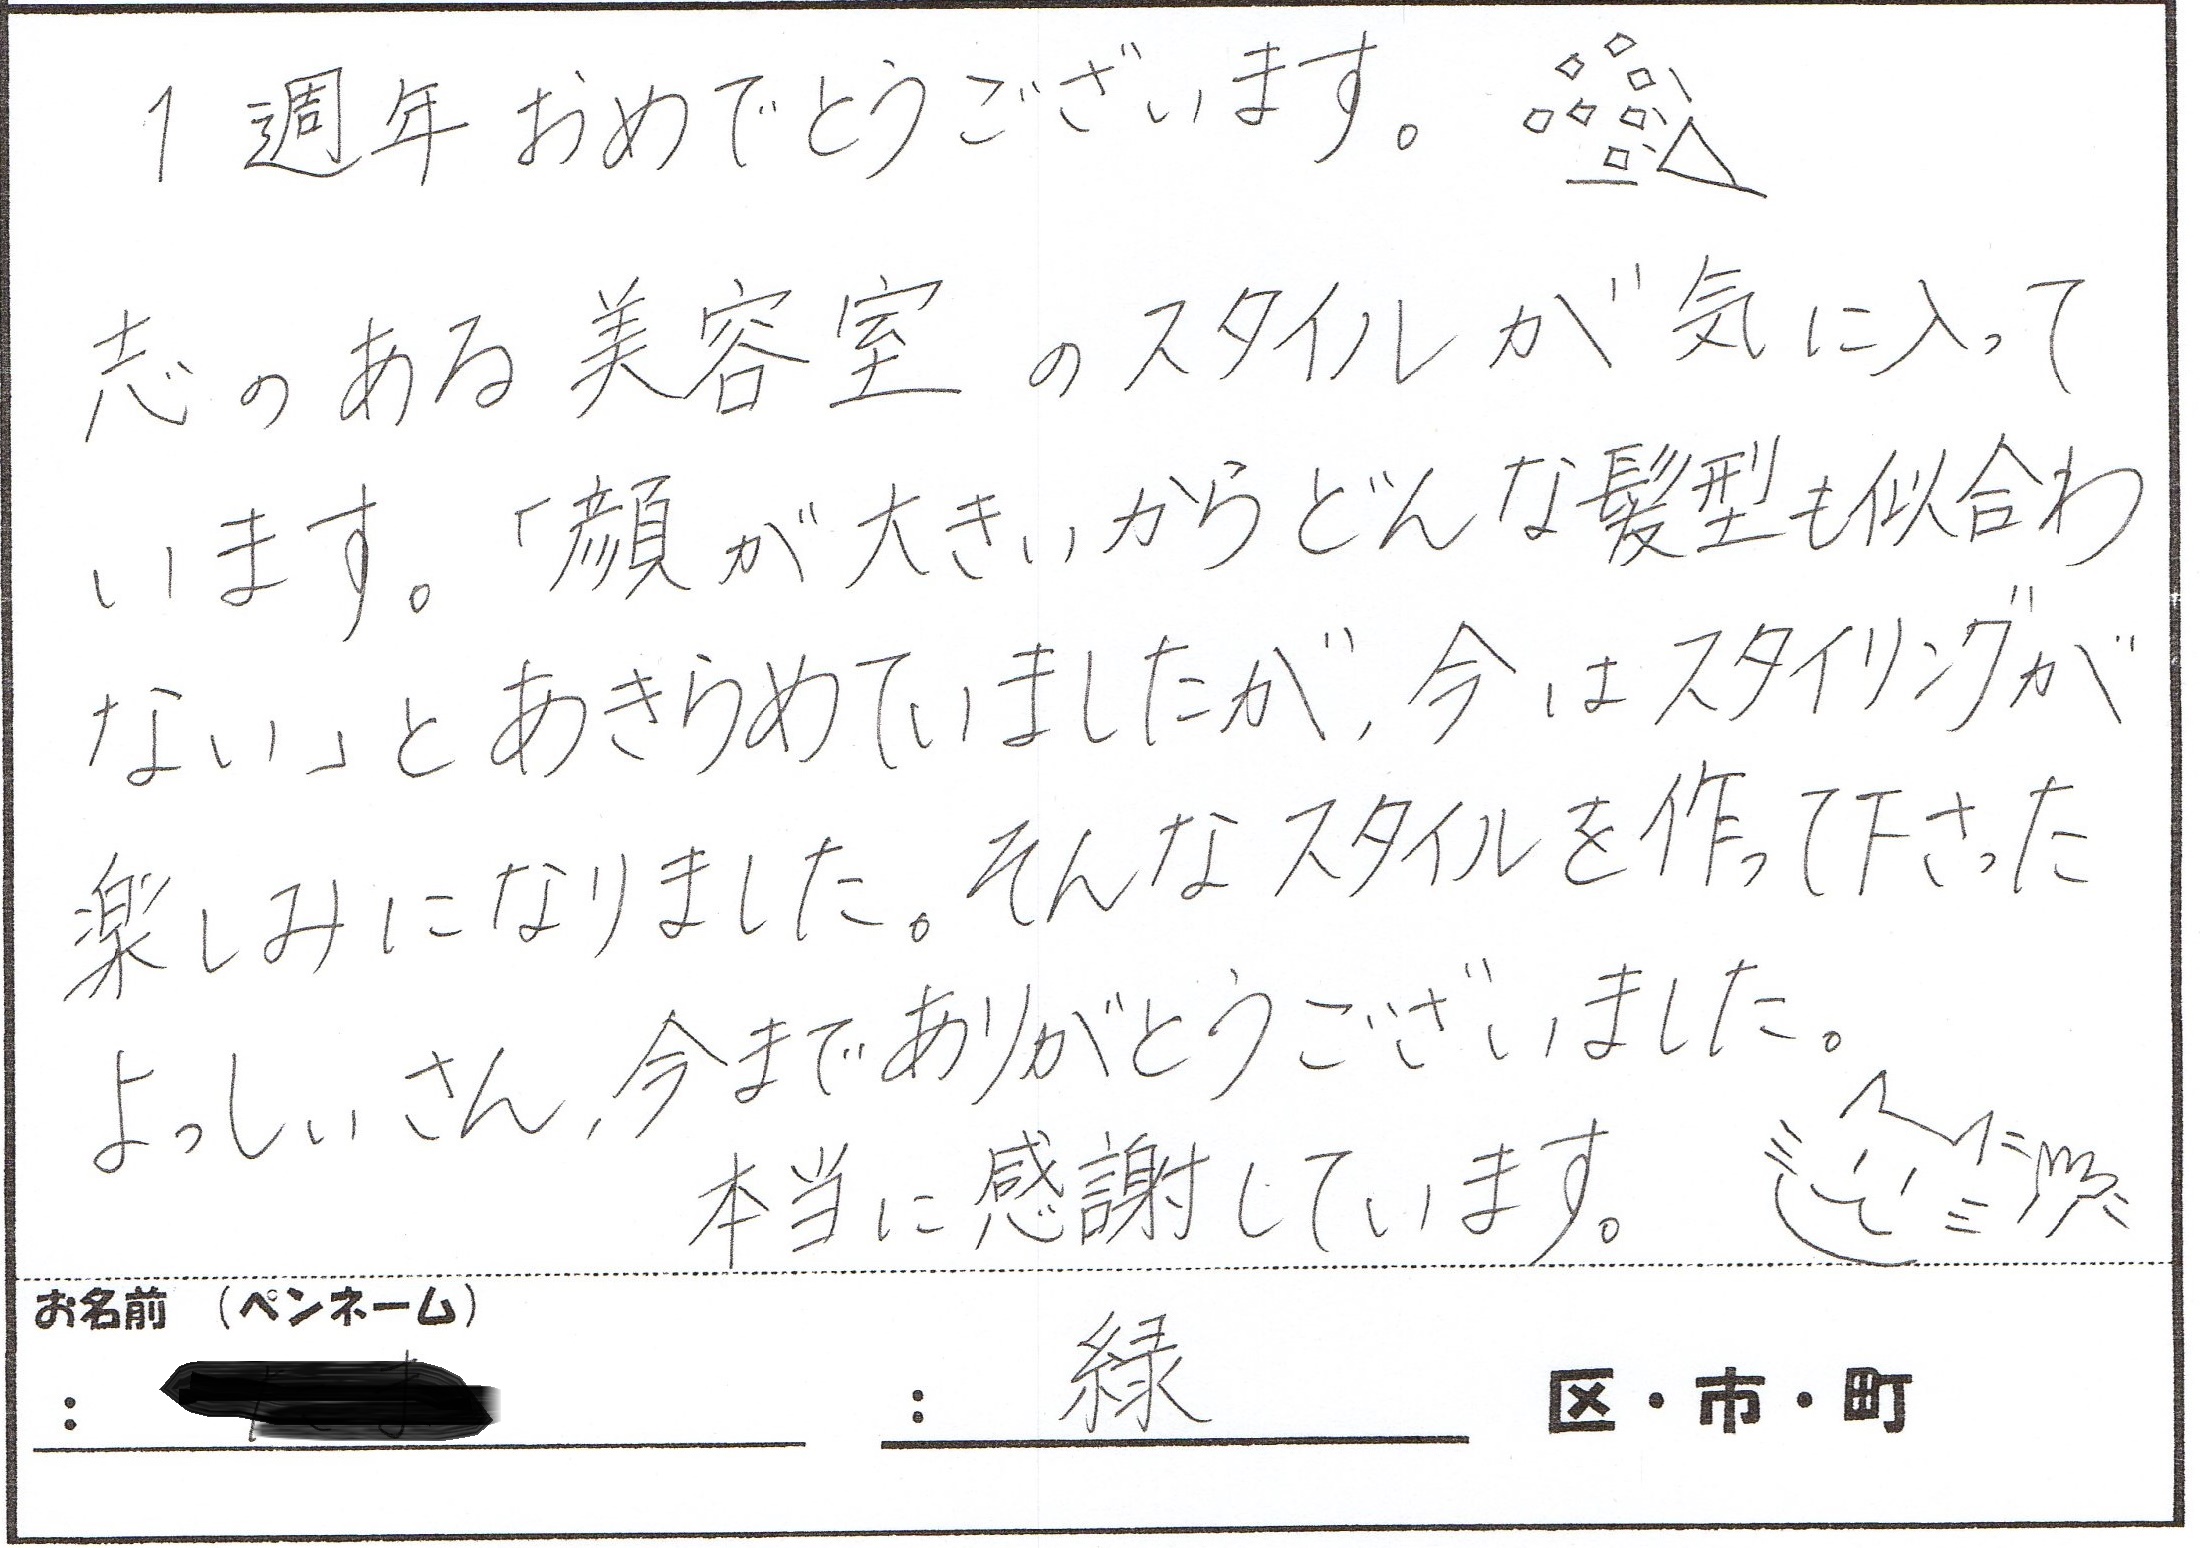 1週年おめでとうございます。
志のある美容室のスタイルが気に入って
います。「顔が大きいからどんな髪型も似合わ
ない」とあきらめていましたが、今はスタイリングが
楽しみになりました。そんなスタイルを作って下さった
よっしぃさん、今までありがとうございました。
本当に感謝しています。
お名前（ペンネーム）
:
: 緑 区・市・町